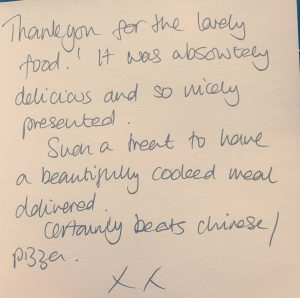 Thankyou for the lovely
food! It was absolutely
delicious and so nicely
presented.
Such a treat to have
a beautifully cooked meal
delivered.
Certainly beats chinese/
pizza.
X X